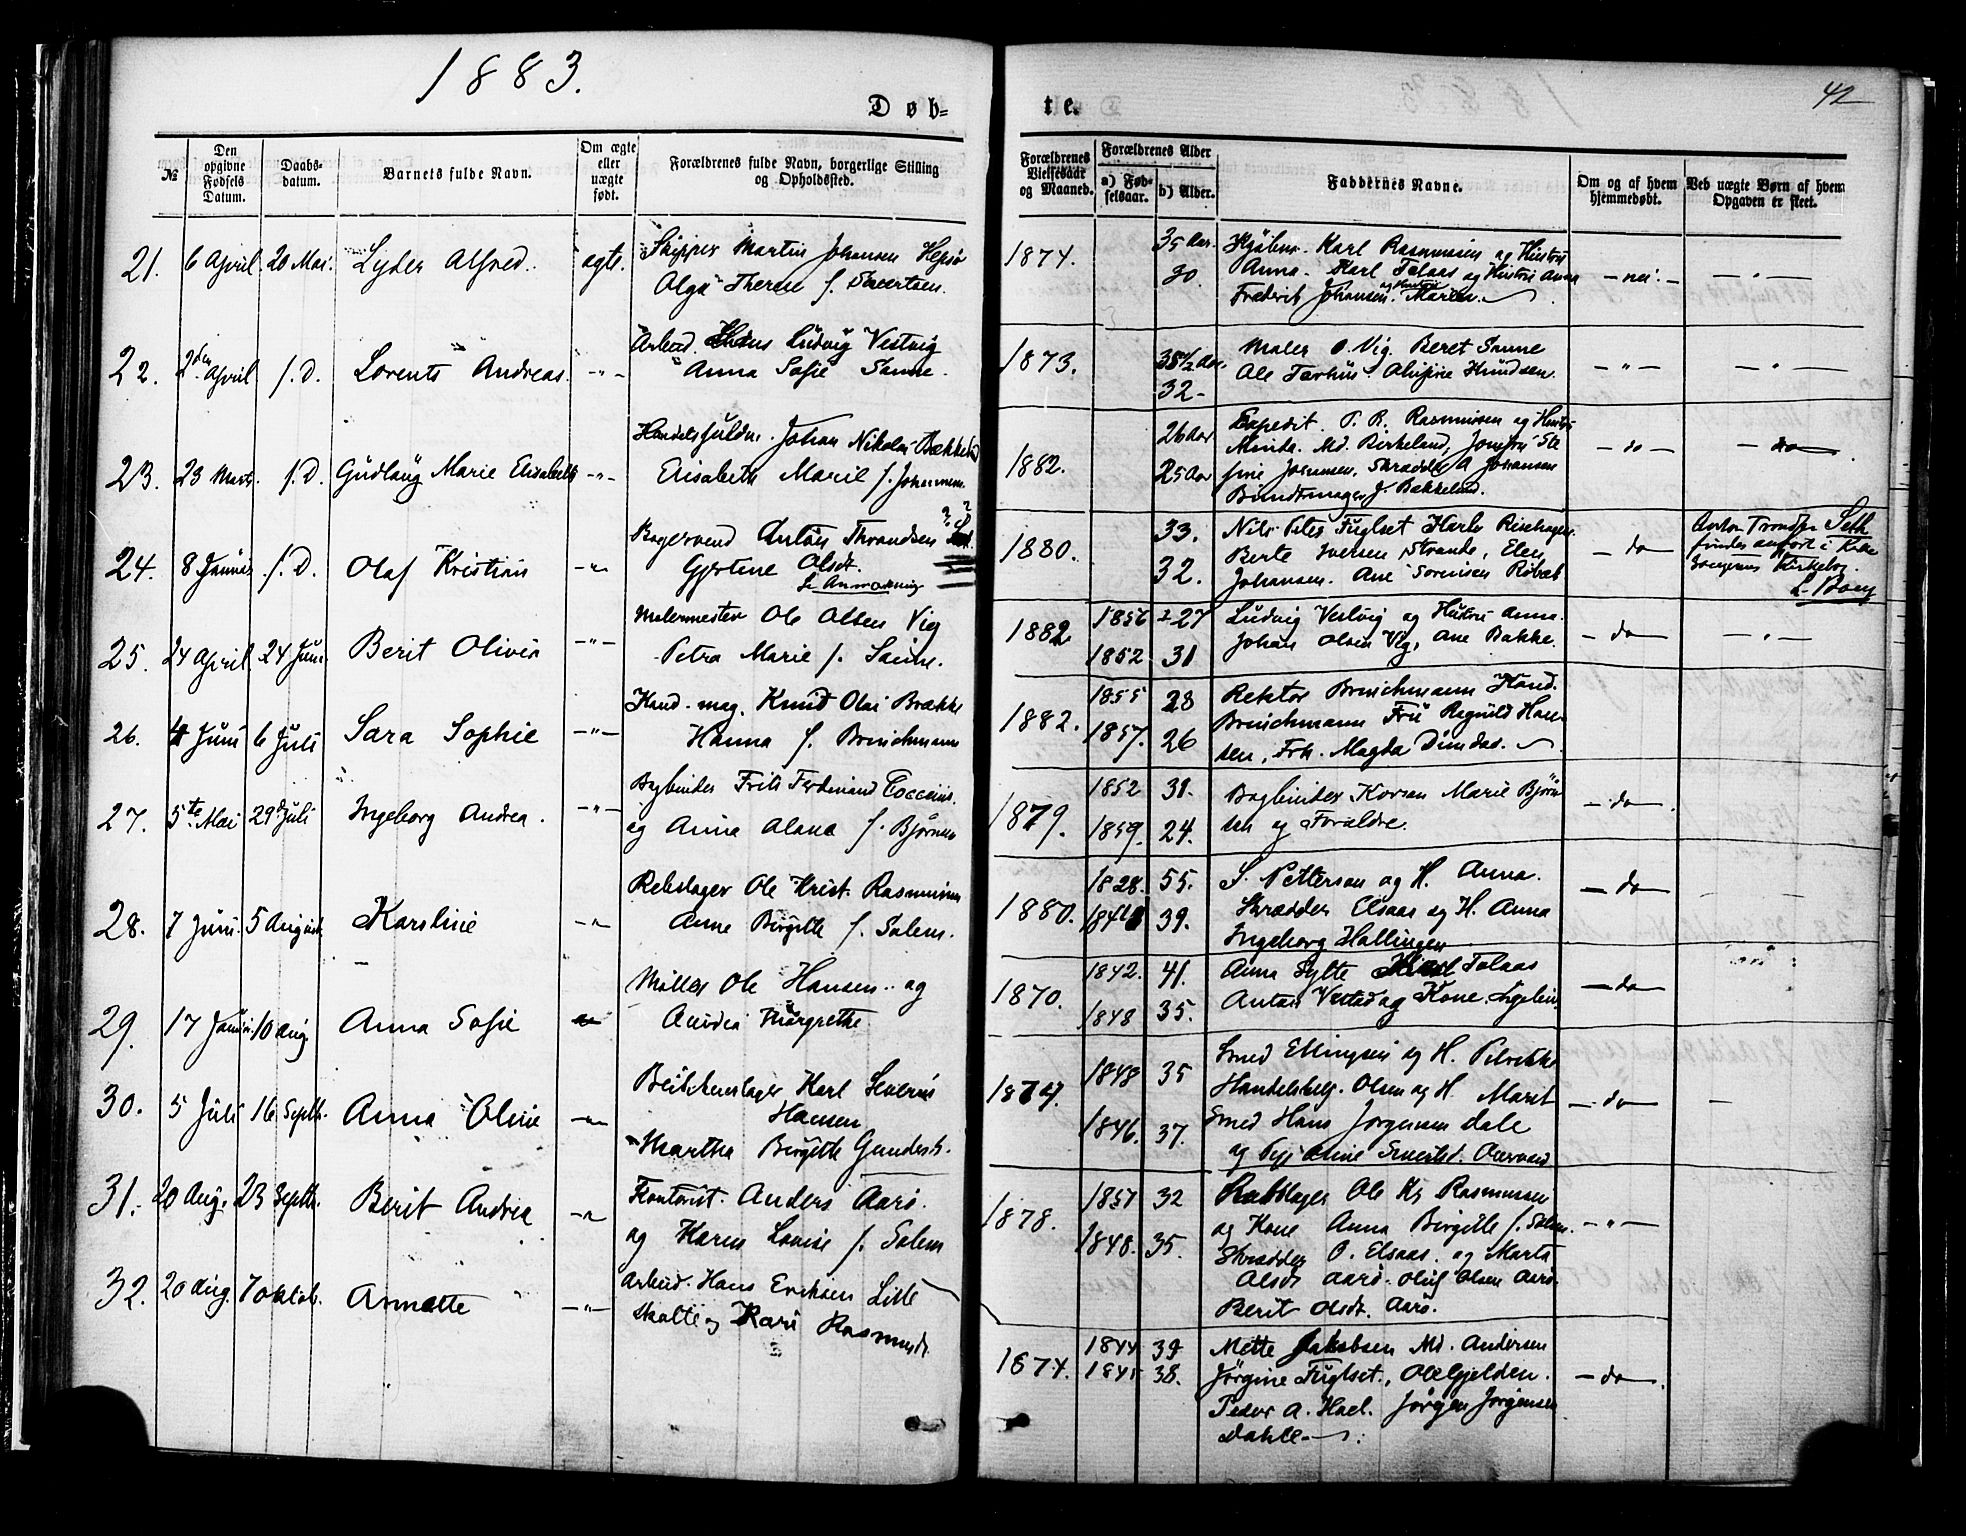 1883.
Døb-
te.
42
№
Den opgivne Fødsels Datum.
Daabs-datum.
Barnets fulde Navn.
Om ægte eller uægte født.
Forældrenes fulde Navn, borgerlige Stilling og Opholdssted.
Forældrenes Vielsesaar og Maaned.
Forældrenes Alder
a) Fødselsaar.
b) Alder.
Faddernes Navne.
Om og af hvem hjemmedøbt.
Ved uægte Børn af hvem Opgaven er skeet.
21. 6 April. 20 Mai. Lyder Alfred. ægte. Skipper Martin Johansen
Olga f.
1874. 35 Aar. Karl Rasmussen og Hustru
30. Anna. Karl Talaas og Hustru Anna - nei. - - " -
Frederik Johansen og Hustru Maren.
22. 2den April s. D. Lorents Andreas. - " - Arbeid. Hans Ludvig Vestvig
Anna Sofie Sanne.
1873. 35 1/2 Aar. Maler O. Vig. Beret Sanne
32 - Ole - " - - " -
23. 23 Marts. s. D. Gudlaug Marie Elisabeth - " - Handelsfuldm. Johan Nikolai Bækkelund
Elisabeth Marie f. Johannesen
1882. 26 Aar Expedit. P. R. Rasmussen og Hustru
Minda. Md. Birkeland, Jomfru - do - - do -
25 Aar Skrædder A Johansen
Buntmager J. Bækkelund.
24. 8 Januar s. D. Olaf Kristian - " - Bagersvend Anton Throndsen
Gjertine Olsdt.
Se Anmærkning
1880. 33. Nils Fuglset
32. Berte Iversen Strande, Elen - do -
Johansen. Ane Sørensen Røbæk
Anton Trondsen Seth
findes anført i
Kirkebog.
25. 24 April 24 Juni Berit Olivia - " - Malermester Ole Olsen Vig
Petra Marie f. Sanne.
1882. 1856 27 Ludvig Vestvig og Hustru Anna.
1852 31 Johan Olsen Vig, Ane Bakke. - do - - " -
26. 4 Juni 6 Juli Sara Sophie - " - Kand. mag. Knud Olai Brække
Hanna f. Brinchmann
1882. 1855 28 Rektor Brinchmann Kand.
1857. 26 Brinchmann Frü Ragnild Han-
sen, Frk. Magda Dundas.
27. 5te Mai 29d Juli Ingeborg Andrea. - " - Bogbinder Frits Ferdinand Cocceius.
og Anna Alana f. Bjørnsen
1879. 1852 31. Bogbinder Marie Bjørn-
1859. 24. sen og Forældre. - do -
28. 7 Juni. 5 August. Karoline - " - Rebslager Ole Krist. Rasmussen
Anne Birgitte f. Salem.
1880. 1828. 55. S. Petterson og H. Anna. - do -
39. Skrædder Elsaas og H. Anna
Ingeborg Hallingen
29. 17 10 Aug. Anna Sofie Møller Ole Hansen. og
Andrea Margrethe.
1870. 1842. 41. Anna Sylte Karl Talaas
1848 35. Anton Vestad og Kone. - do -
30. 5 Juli 16 Septb. Anna Oline - " - Karl Severin
Hansen
Martha Birgitte Gundersd.
1874. 1848 35 Smed Ellingsen og H.
Handelsbetj. Olsen og H. Marit - do - -
1846. 37. Smed Hans Jørgensen Dale
og Pige Anne
31. 20 Aug. 23 Septb. Berit Andrea - " - Kontorist. Anders Aarø.
og Karen Lovise f. Salem
1878. 1851 32 Rebslager Ole Kr Rasmussen
og Kone Anna Birgitte f. Salem. - " -
1848. 35. Skrædder O. Elsaas. og Marta
Olsdt Aarø. Oluf Olsen Aarø.
Berit Olsdt. Aarø.
32. 20 Aug. 7 Oktob. Annette - " - Arbeid. Hans Eriksen Lille
Skalle og Kari Rasmusdt.
1874. 1844 39 Mette Jakobsen Md. Andersen
1845 38. Jørgine Fuglset., Ole Gjelden. - do -
Peder A. Hoel. Jørgen Jørgensen
Dahle.